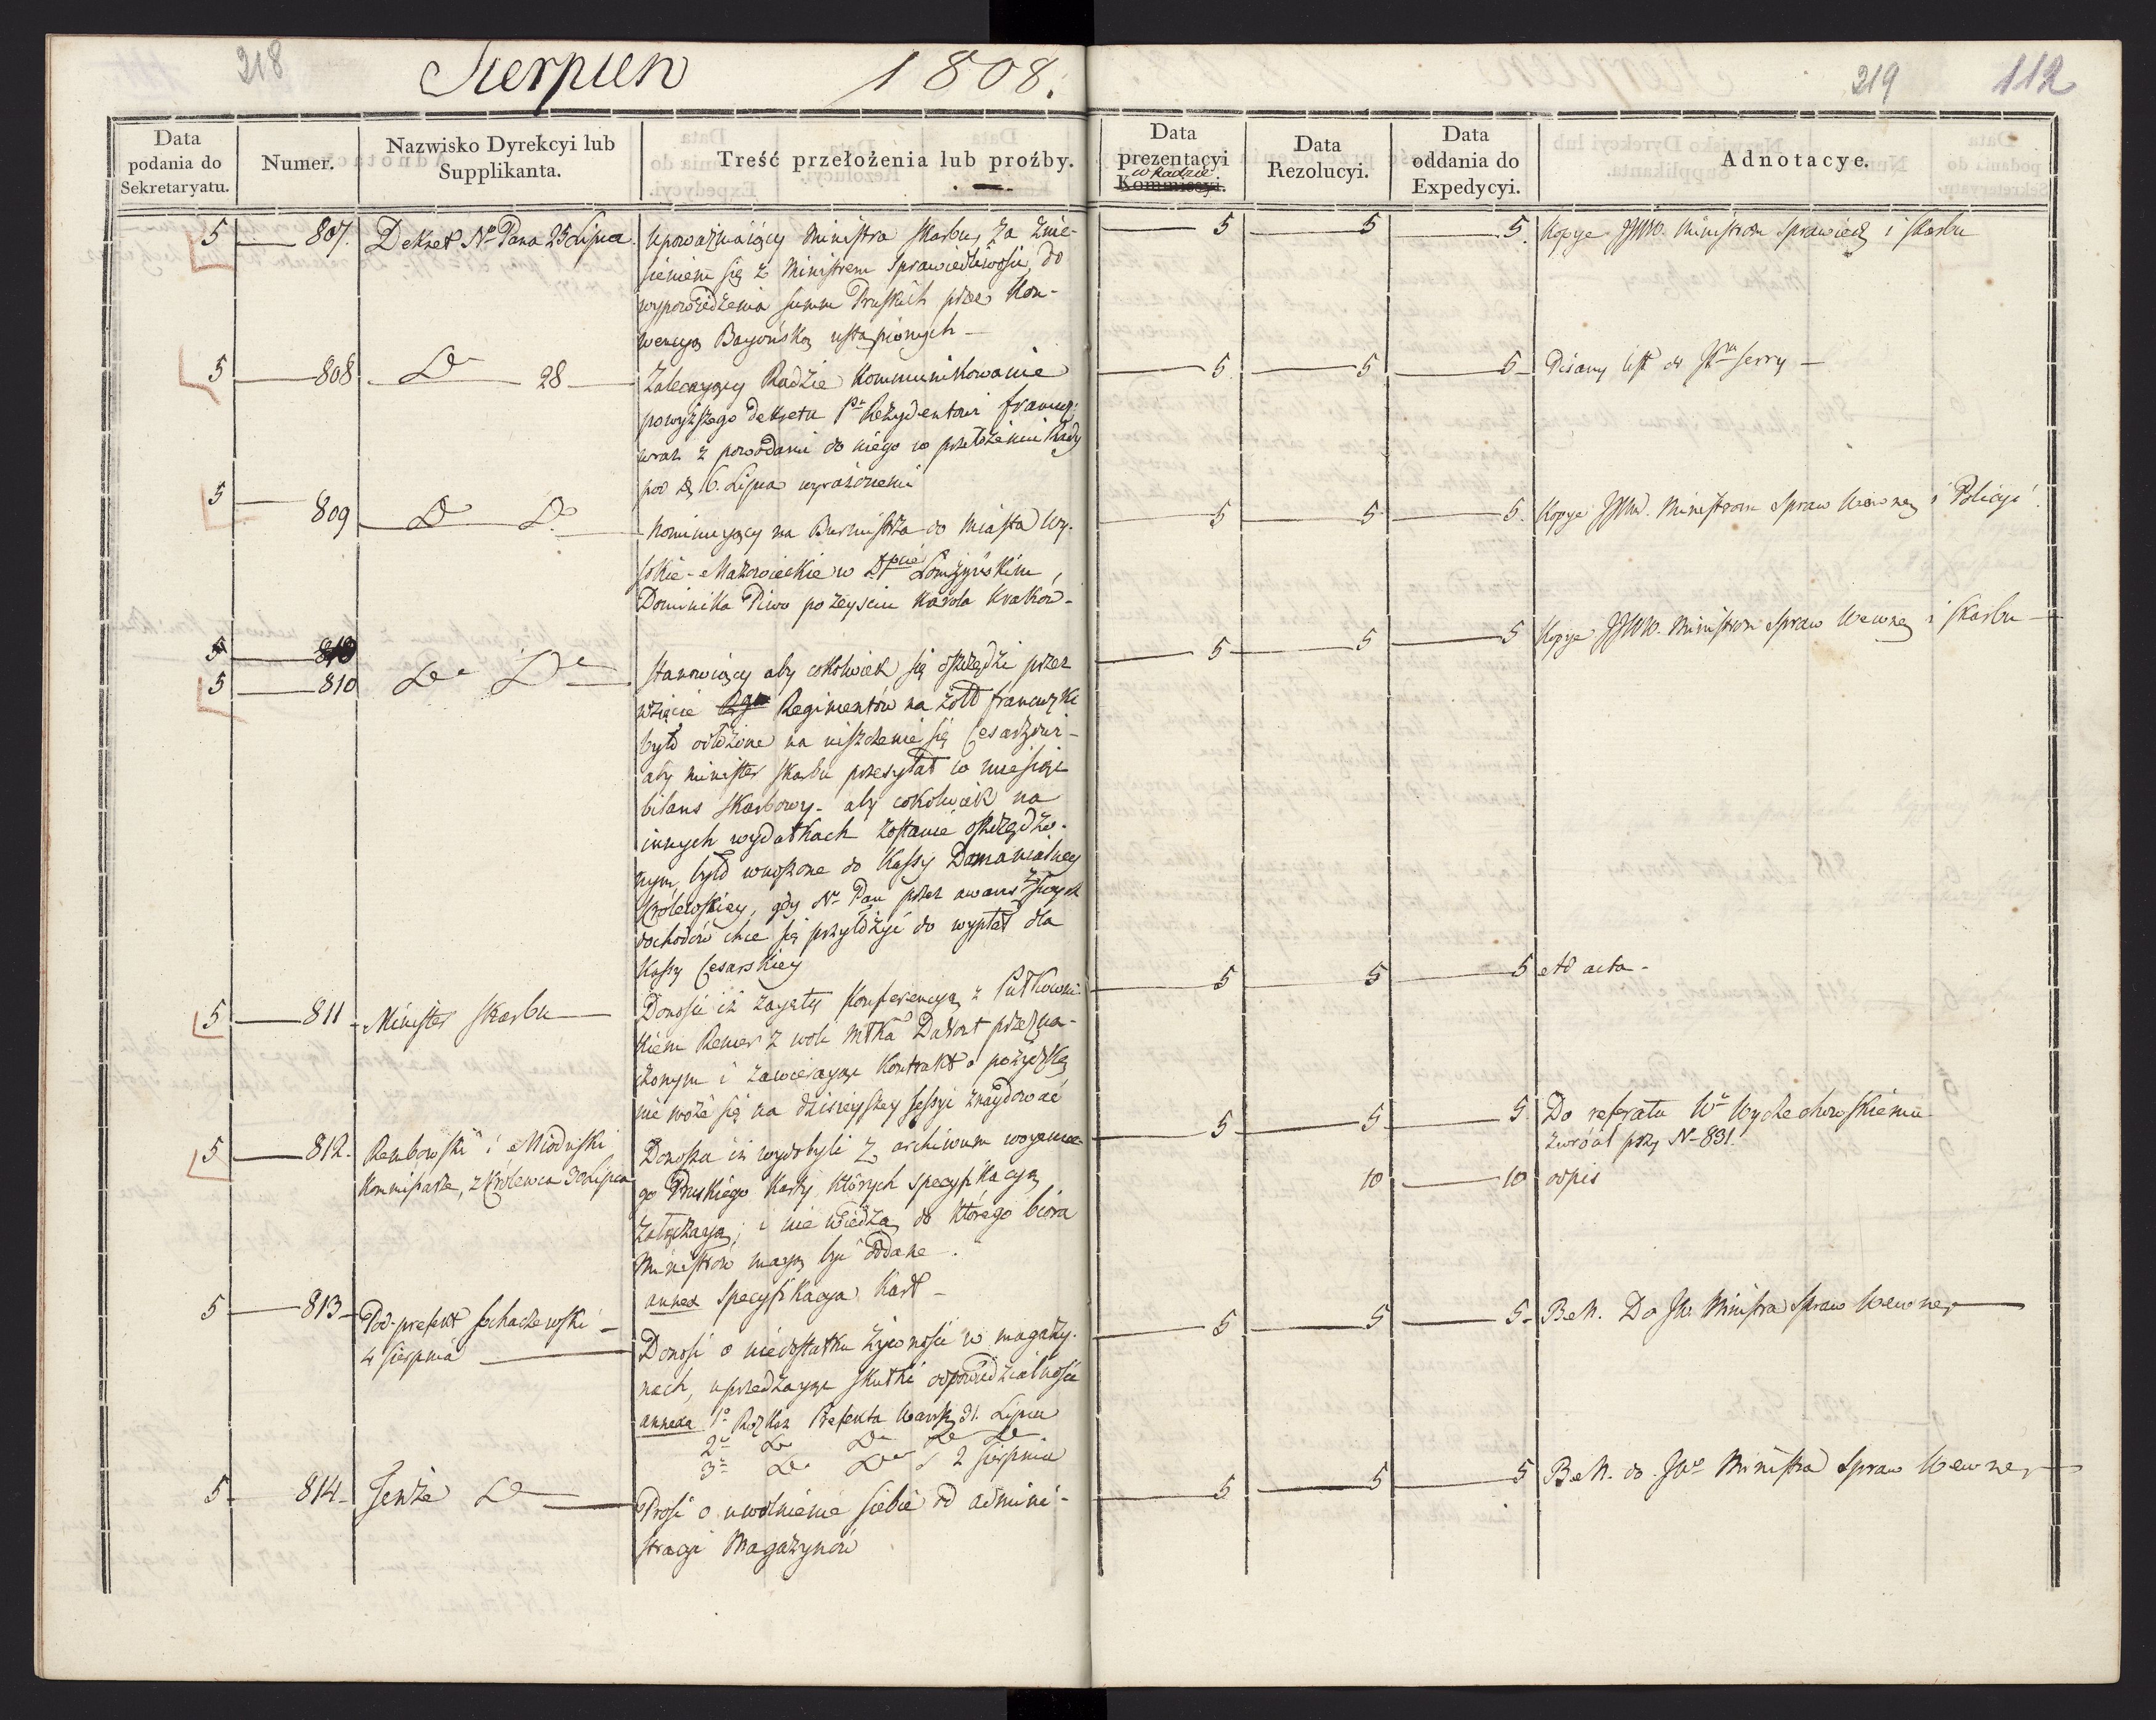 218
Sierpień 1808.
219
112
Data podania do Sekretaryatu.
Numer.
Nazwisko Dyrekcyi lub Supplikanta.
Treść przełożenia lub proźby.
Data prezentacyi w Radzie Kommissyi.
Data Rezolucyi.
Data oddania do Expedycyi.
Adnotacye.
5 807. Dekret No Pana 25 Lipca.
upoważniaiący Ministra Skarbu, za znie-
sieniem się z Ministrem Sprawiedliwości, do
wypowiedzenia summ Pruskich przez Kon-
wencyą Bayońską ustąpionych
5 5 5. Kopye JJWW. Ministrom Sprawiedl i Skarbu
5 808 Do 28
Zalecaiący Radzie kommunikowanie
powyższego Dekretu Pu Rezydentowi francuz:
wraz z powodami do niego w przełożeniu Rady
pod 16. Lipca wyrażonemi
5 5 5 Pisany list do JPa Serry
5 809 Do Do
Nominuiący na Burmistrza do Miasta Wy-
sokie-Mazowieckie w Dpcie Łomżyńskim,
Dominika Piwo po zeyściu Karola Kraków-
5 5 5. Kopye JJWW. Ministrom Spraw Wewnę i Policyi
5 813
5 810 Do Do
stanowiący aby cokolwiek się oszczędzi przez
wzięcie Regimentów na żołd francuzki
było odłożone na uiszczenie się Cesarzowi-
aby Minister Skarbu przesyłał co miesiąc
bilans skarbowy- aby cokolwiek na
innych wydatkach zostanie oszczędzo-
nym, było wnoszone do Kassy Domanialney
Królewskiey, gdy No Pan przez awans swych
dochodów chce się przyłożyć do wypłat dla
Kassy Cesarskiey
5 5 5 Kopye JJWW. Ministrom Spraw Wewnę i Skarbu
5 811 Minister Skarbu
Donosi iż zaięty konferencyą z Pułkowni-
kiem Remer z woli Młka Davout przezna-
czonym i zawieraiąc kontrakt o pożyczkę
nie może się na dzisieyszey sessyi znaydować
5 5 5 Ad acta-
5 812. Rembowski i Miodoński
Kommissarze, z Królewca 30 Lipca
Donoszą iż wydobyli z archiwum woienne-
go Pruskiego karty, których specyfikacyą
załączaią; i nie wiedzą do którego biora
Ministrów maią być oddane.
annex Specyfikacya Kart
5 5 5 Do referatu Wo Wyczechowskiemu
zwrócił przy No 831.
10 10 odpis
5 813 Pod-prefekt Sochaczewski
4 Sierpnia
Donosi o niedostatku żywności w magazy-
nach, uprzedzaiąc skutki odpowiedzialności
annexa 1o Rozkaz Prefekta Warsz. 31. Lipca
2o Do Do Do Do
3o Do Do d 2 Sierpnia
5 5 5- BeM. Do JW Ministra Spraw Wewnę
5- 814- Tenże Do
Prosi o uwolnienie siebie od admini-
stracyi Magazynów
5 5 5 BeM. do JWo Ministra Spraw Wewnę